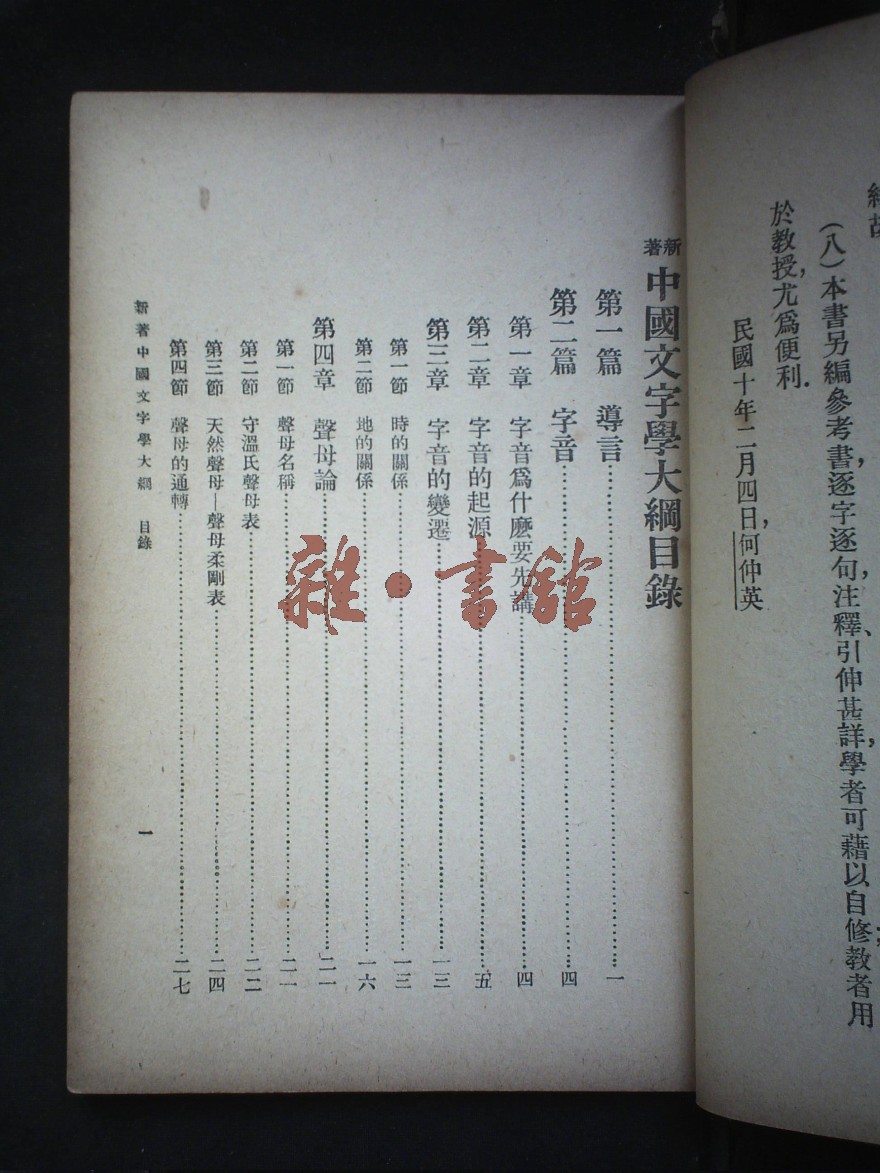 (八)本書另編參考書,逐字逐句,注釋、引伸甚詳,學者可藉以自修,教者用
於教授,尤爲便利.
民國十年二月四日,何仲英
新著中國文字學大綱目錄
第一篇 導言……一
第二篇 字音……四
第一章 字音爲什麼要先講……四
第二章 字音的起源……五
第三章 字音的變遷……一三
第一節 時的關係……一三
第二節 地的關係……一六
第四章 聲母論……二一
第一節 聲母名稱……二一
第二節 守溫氏聲母表……二二
第三節 天然聲母—聲母柔剛表……二四
第四節 聲母的通轉……二七
新著中國文字學大綱 目錄 一
雜·書館